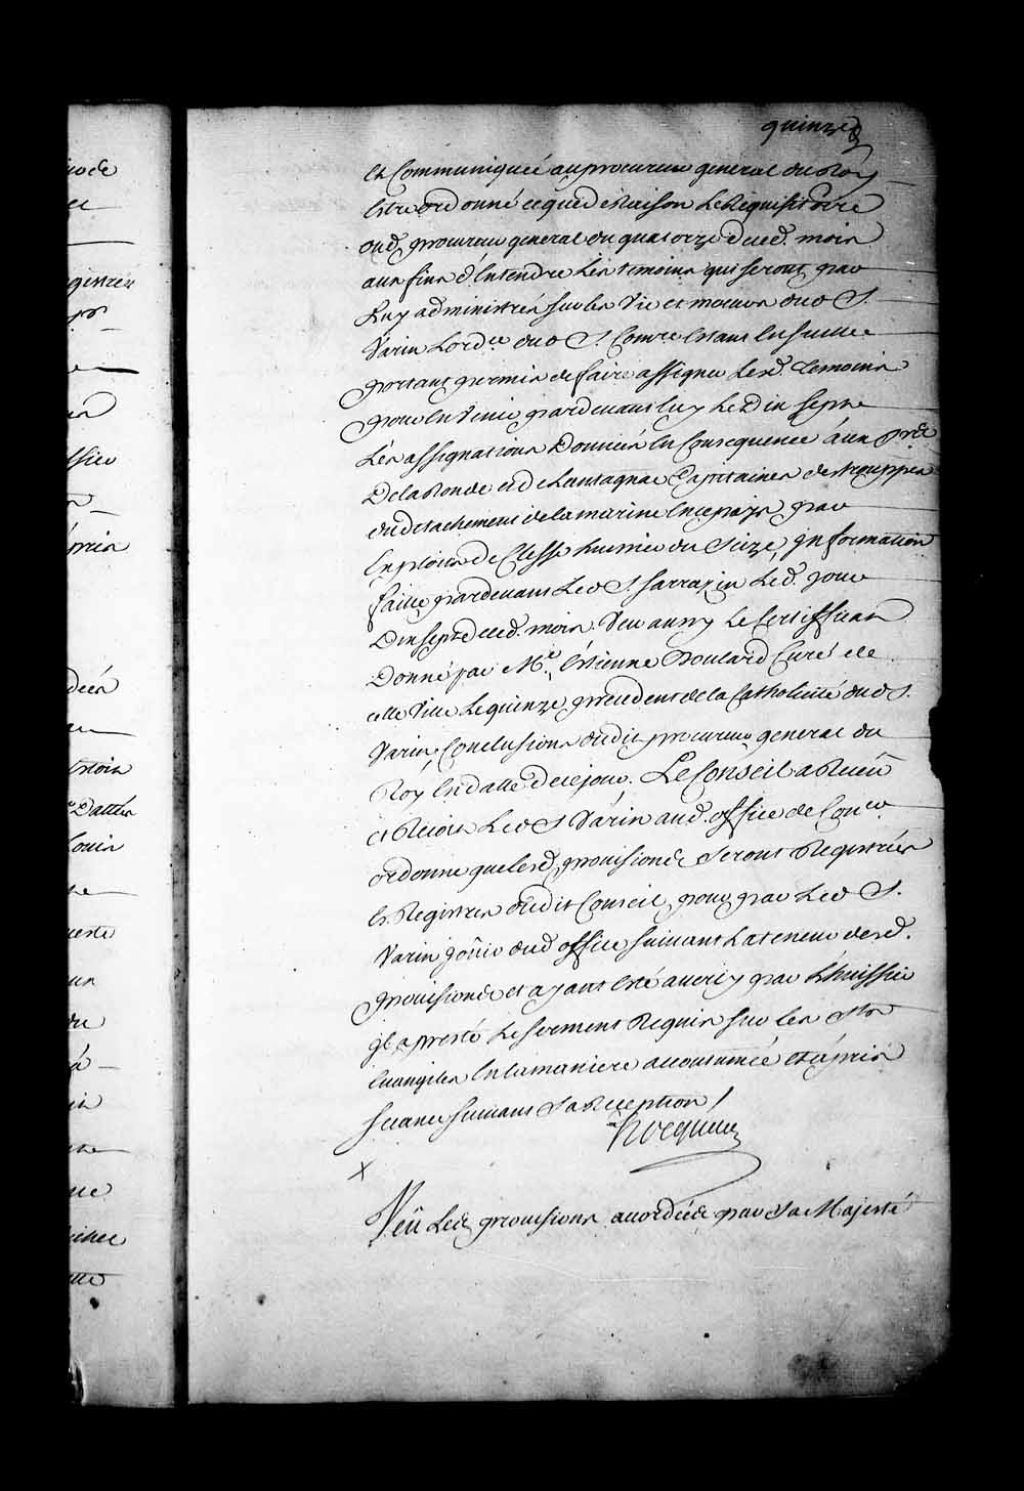 quinze
et Communiquée au procureur general du Roy
Estre ordonné ce que de Raison le Requisitoire
dud. procureur general du quatorze dud. mois
aux fins d'Entendre les temoins qui seront par
Luy administrés sur les Vie et moeurs dud S.
Varin Lord.ce dud S. Estant ensuitte
portant permis de faire assigner lesd. temoins
pour en Venir pardevant luy le Dix sept
Les assignations Données en Consequence aux
De la Ronde et de Lantagnac Capitaines des trouppes
du detachement de la marine En ce pays par
Exploits de Clesse huissier du Seize, jnformation
faitte pardevant led S. Sarrazin led. jour
Dix sept dud. mois. Veu aussy le Certifficat
Donné par M.e Estienne Boulard Curé de
cette Ville le quinze precedent de la Catholicité dud S.
Varin, Conclusions dudit procureur general du
Roy En datte de ce jour. Le Conseil a Receû
et Reçoit led S Varin aud. office de Con.er
ordonne que lesd. provisions Seront Registrées
Es Registres dudit Conseil pour par led S.
Varin joüir dud office suivant la teneur desd.
provisions et ayant Esté averty par l'huissier
jl a presté le serment Requis sur les Sts
Evangiles En la maniere accoutumée et a pris
seance suivant Sa Reception /
Hocquart
X
Veû les provisions accordées par Sa Majesté